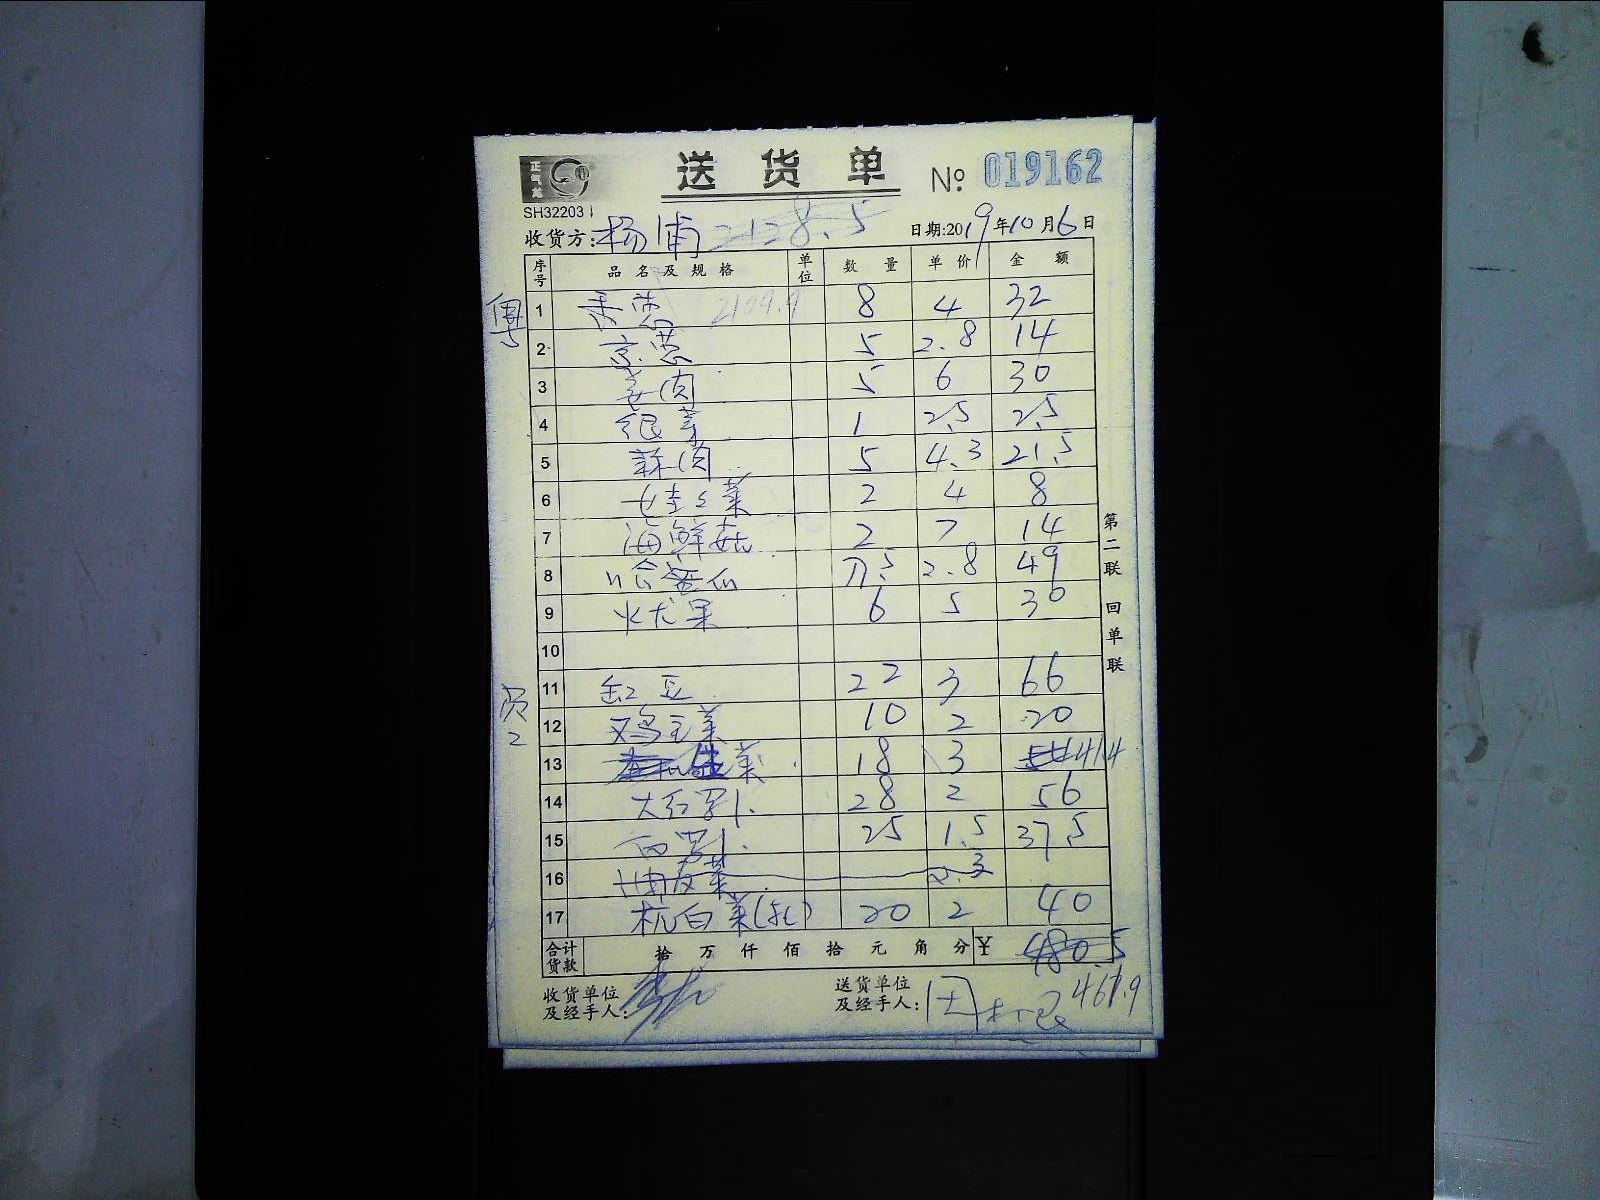 送货单 № 019162
SH32203
收货方: 杨浦 2128.5 日期:2019年10月6日
序号 品名及规格 单位 数量 单价 金额
2109.9
1 8 4 32
2 京葱 5 2.8 14
3 姜肉 5 6 30
4 银芽 1 2.5 2.5
5 蒜肉 5 4.3 21.5
6 菜 2 4 8
7 海鲜菇 2 7 14
8 哈蜜瓜 17.5 2.8 49
9 火龙果 6 5 30
10
11 缸豆 22 3 66
12 鸡毛菜 10 2 20
13 生菜 18 3 54 41.4
14 大红萝卜 28 2 56
15 白萝卜 25 1.5 37.5
16 菜 2.3
17 杭白菜 20 2 40
合计货款 拾 万 仟 佰 拾 元 角 分 ¥ 480.5
467.9
收货单位及经手人:
送货单位及经手人:
第二联 回单联